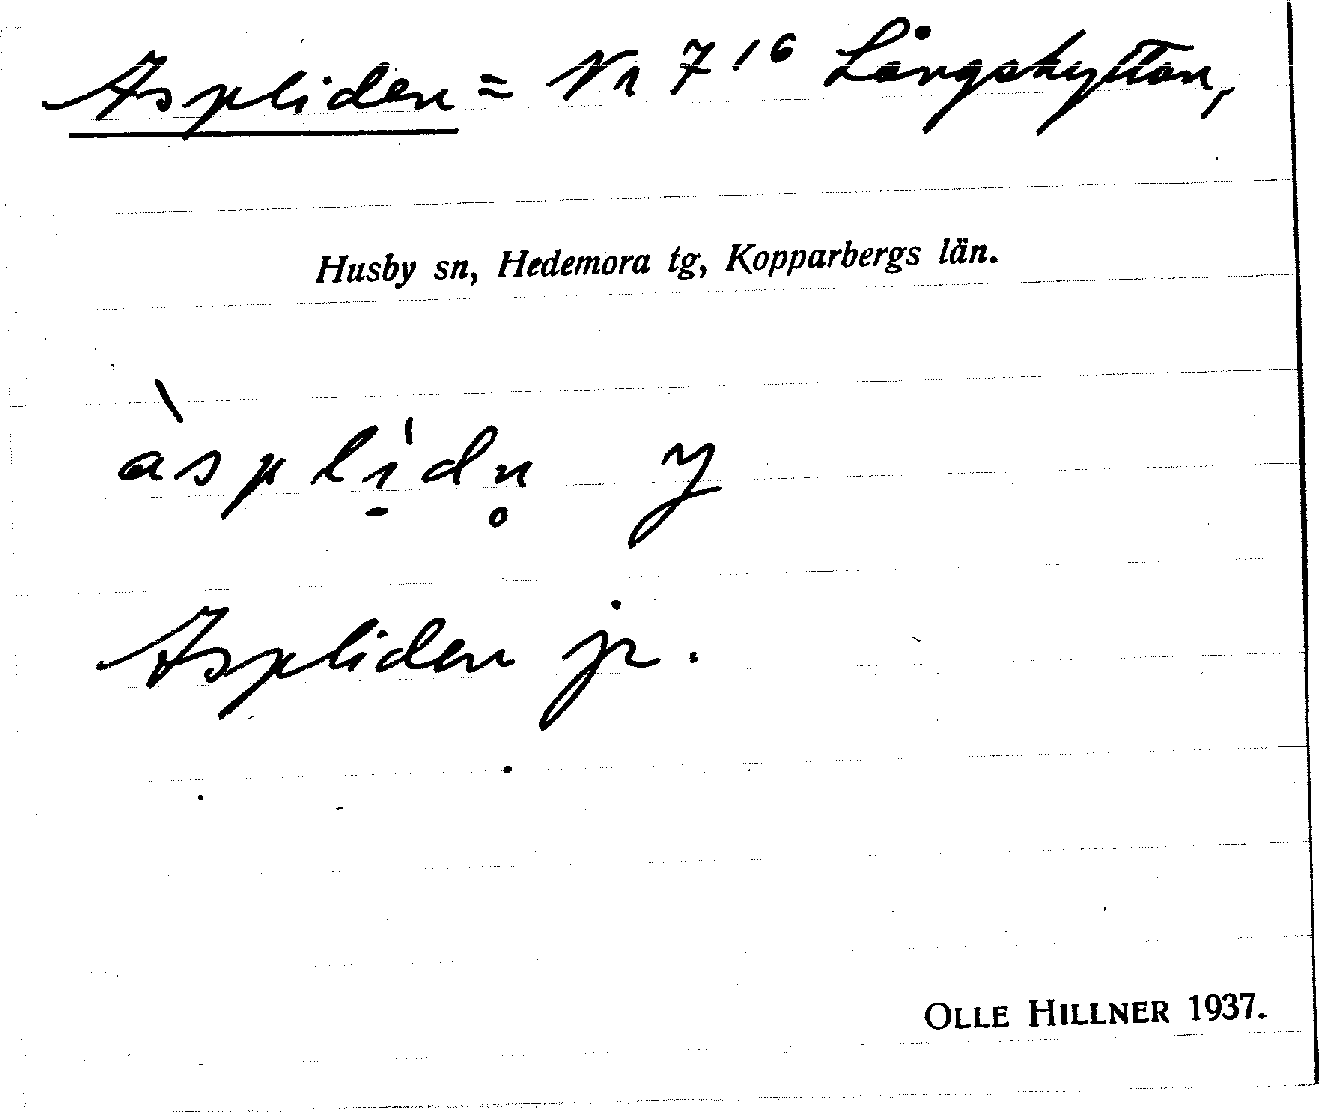 Aspliden = Nr 7¹⁶ Långshyttan,
Husby sn, Hedemora tg, Kopparbergs län.
àsplı̠́dn̥ y
Aspliden jr.
OLLE HILLNER 1937.